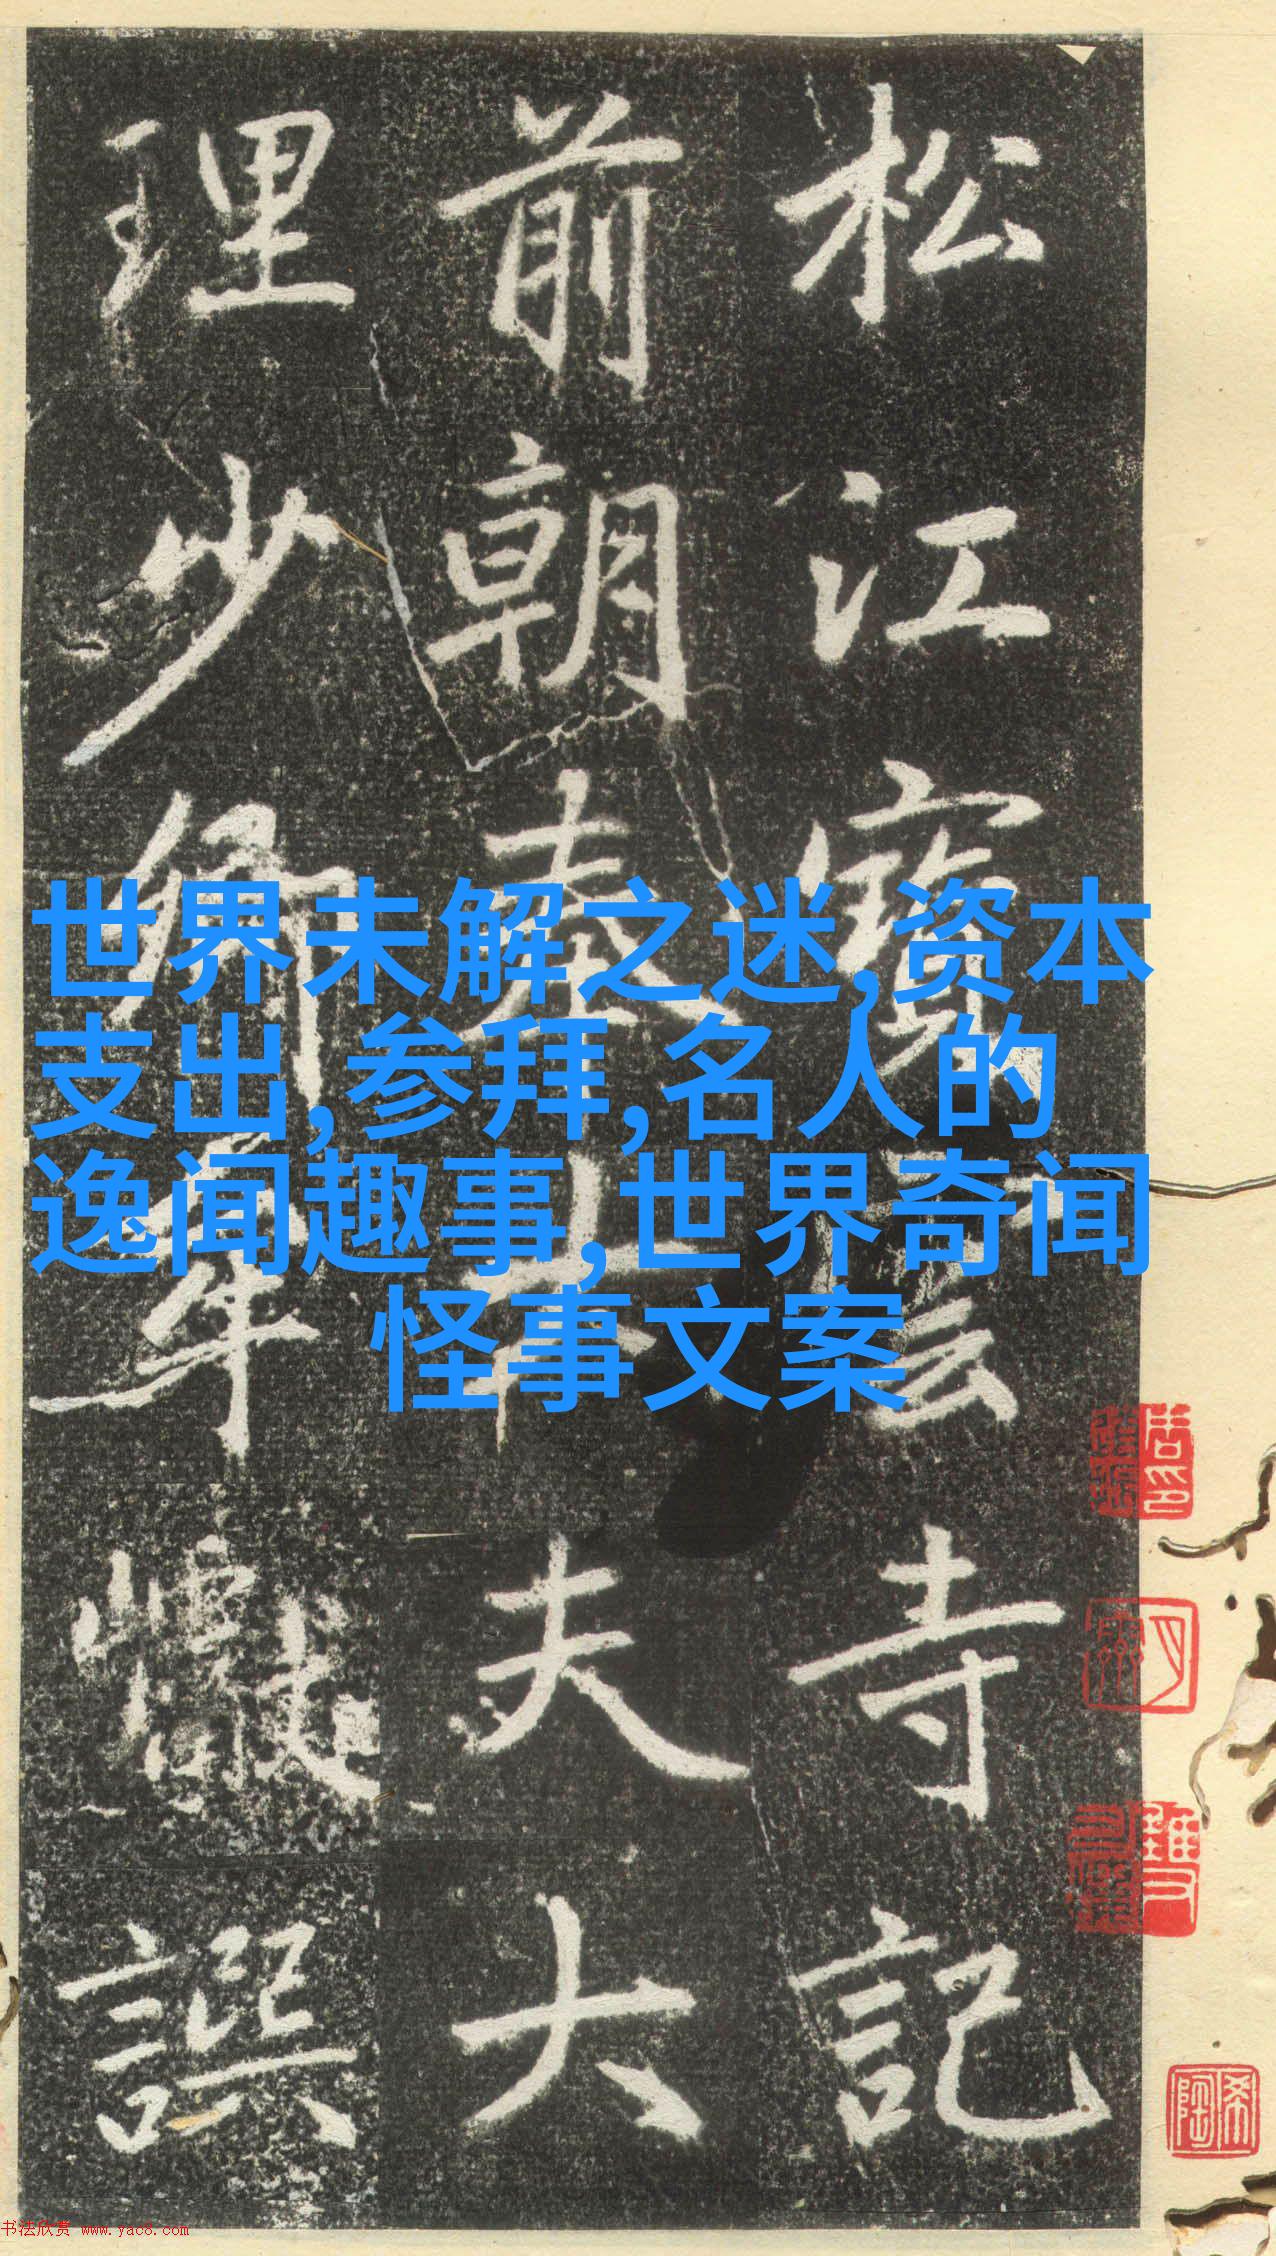 松江寶雲寺記
前朝奉大夫大
理少卿牟巘譔
世界未解之迷,资本
支出,参拜,名人的
逸闻趣事,世界奇闻
怪事文案
希陶
书法欣赏 www.yac8.com